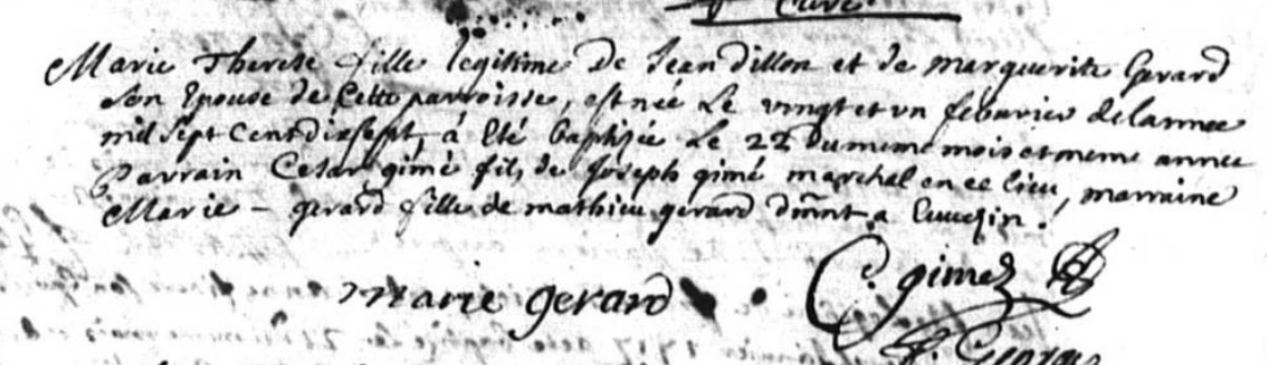 Curé
Marie Therese fille legitime De Jean Dillon et de marguerite Gerard
son Epouse de Cette parroisse, est née Le vingt et un febvrier de lannee
mil sept Cent dix sept, à Eté baptisée Le 22 du meme mois et meme annee
Parrain Cesar gimé fils de Joseph gimé marchal en ce lieu, marraine
Marie - gerard fille de mathieu gerard dmnt a
marie gerard
C. gimez
George